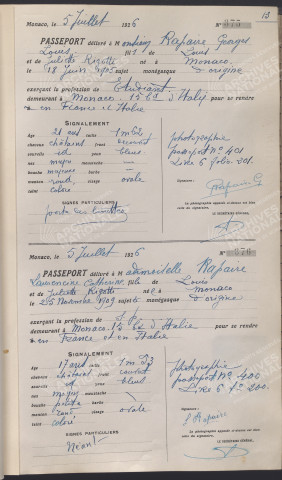 13
Monaco, le 5 Juillet 1926 N° 375
PASSEPORT délivré à Monsieur Rapaire Georges
Louis fils de Louis
et de Juliette Rigotti né à Monaco
le 18 Juin 1905 sujet monégasque d'origine
exerçant la profession de Etudiant
demeurant à Monaco 15 Bd d'Italie pour se rendre
en France et Italie
SIGNALEMENT
âge 21 ans taille 1m62
cheveux châtains front
sourcils id yeux bleus
nez moyen moustache
bouche moyenne barbe
menton rond visage ovale
teint coloré
SIGNES PARTICULIERS
porte des lunettes
photographie
passeport N° 401
Livre 6 folio 201.
Signature :
Rapaire G
La photographie apposée ci-dessus est suivie
de sa signature.
LE SECRÉTAIRE GÉNÉRAL,
Monaco, le 5 Juillet 1926 N° 376
PASSEPORT délivré à Mademoiselle Rapaire
Laurencine Catherine fille de Louis
et de Juliette Rigotti née à Monaco
le 25 Novembre 1909 sujette monégasque d'origine
exerçant la profession de S.p.
demeurant à Monaco 15 Bd d'Italie pour se rendre
en France et en Italie
SIGNALEMENT
âge 17 ans taille
cheveux châtains front
sourcils id yeux bleus
nez moyen moustache
bouche petite barbe
menton rond visage ovale
teint coloré
SIGNES PARTICULIERS
Néant
photographie
passeport N° 400
Livre 6 f° 200.
Signature :
Rapaire
La photographie apposée ci-dessus est suivie
de sa signature.
LE SECRÉTAIRE GÉNÉRAL,